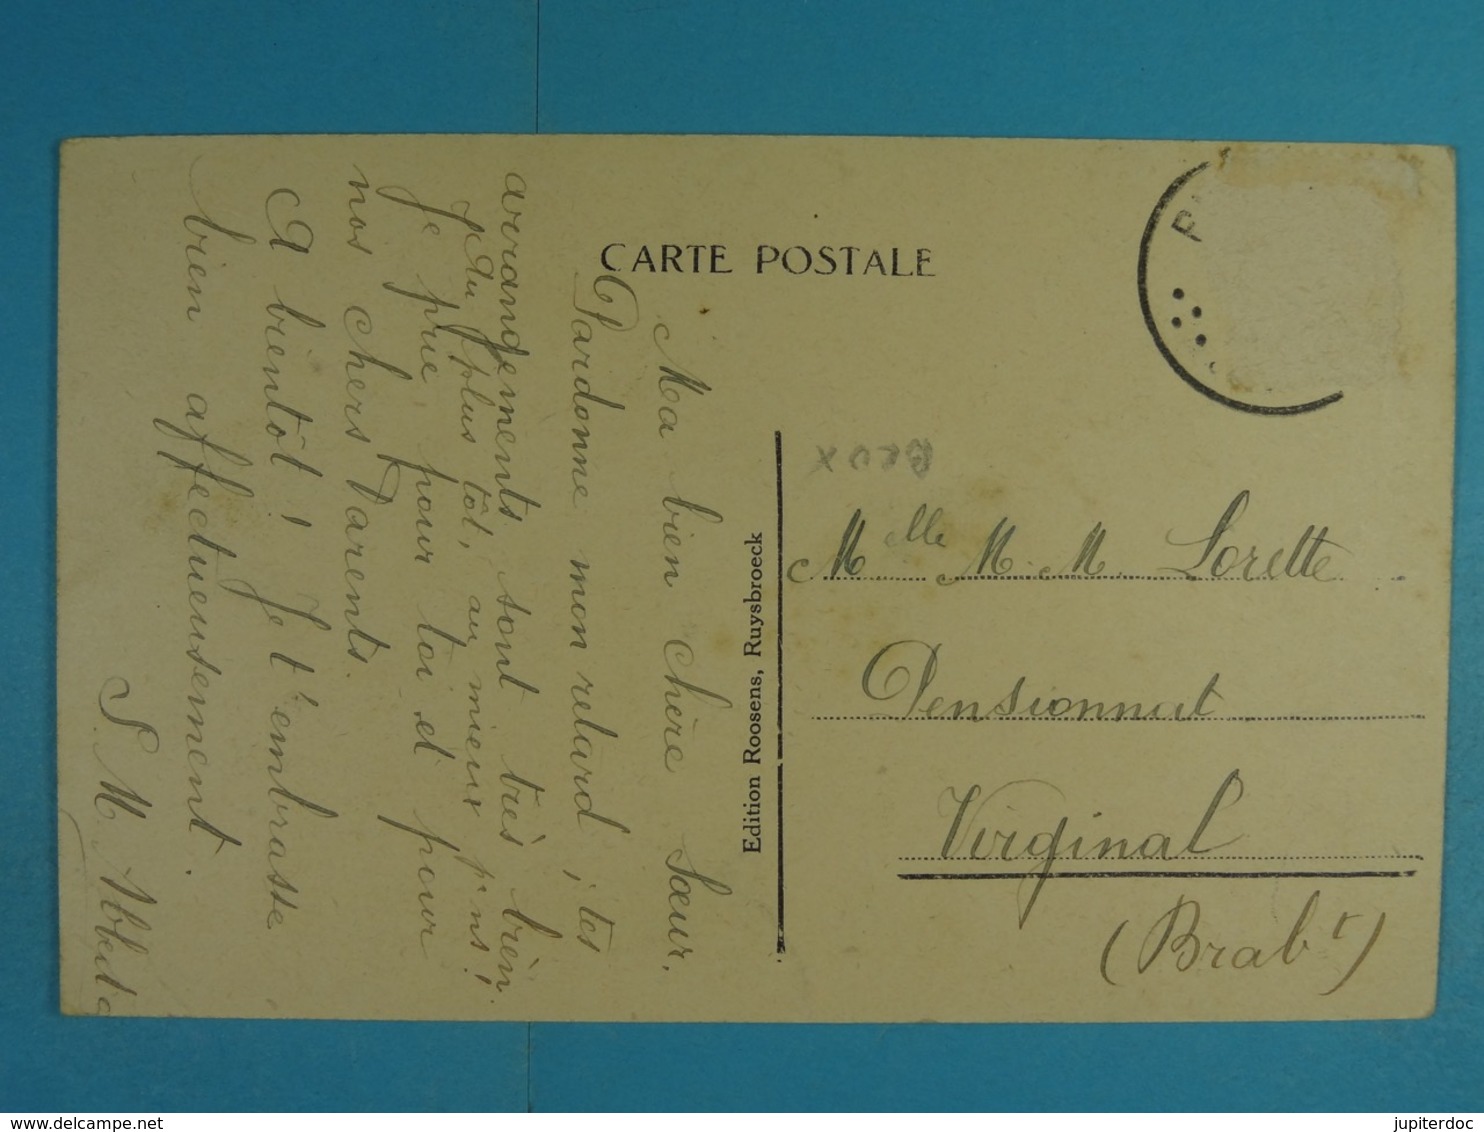 CARTE POSTALE
Ma bien chère Sœur.
Pardonne mon retard ; tes
arrangements sont très bien.
Au plus tôt, au mieux p' ns!
Je prie pour toi et pour
nos chers Parents.
A bientôt ! Je t'embrasse
bien affectueusement.
S. M.
Edition Roosens, Ruysbroeck
BRUX
Melle M. M. Lorette
Pensionnat
Virginal
(Brabt)
www.delcampe.net
jupiterdoc